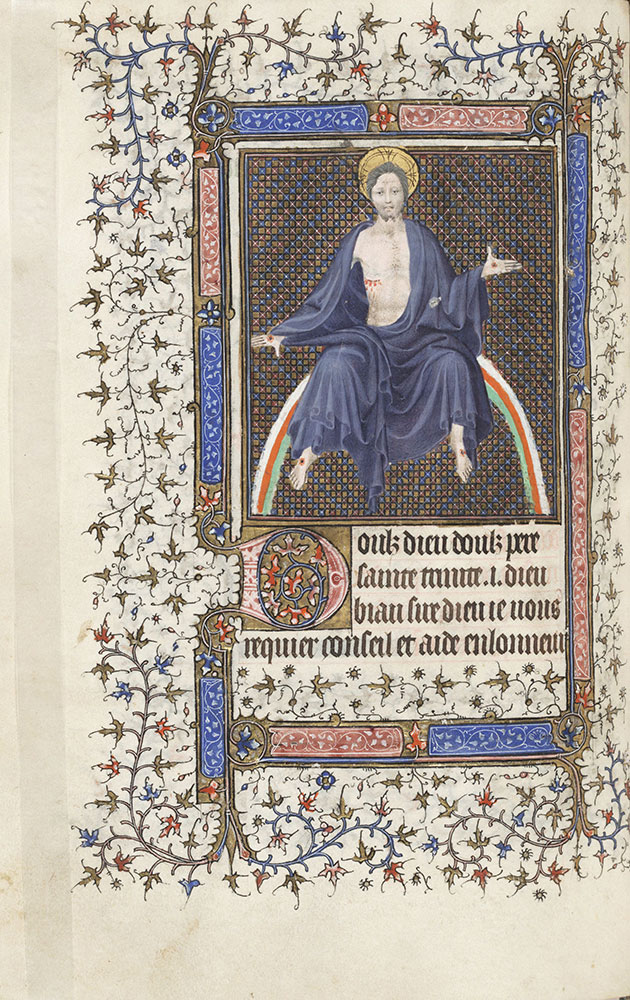 Doulz dieu doulz pere
sainte trinite .i. dieu
biau sire dieu ie vous
requier conseil et aide en lonneur